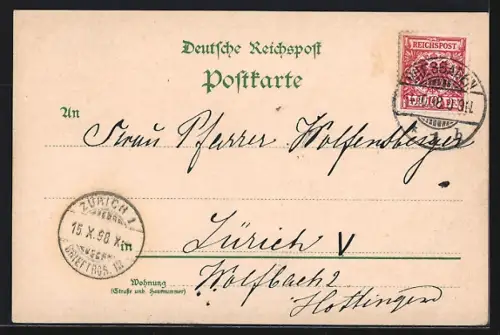 Deutsche Reichspost
Postkarte
REICHSPOST
WIESBADEN
An
Frau Pfarrer Wolfensberger
ZÜRICH 1
15.X.98.X
BRIEFTRÄG. III
in
Zürich V
Wohnung
(Straße und Hausnummer)
Wolfbach 2
Hottingen